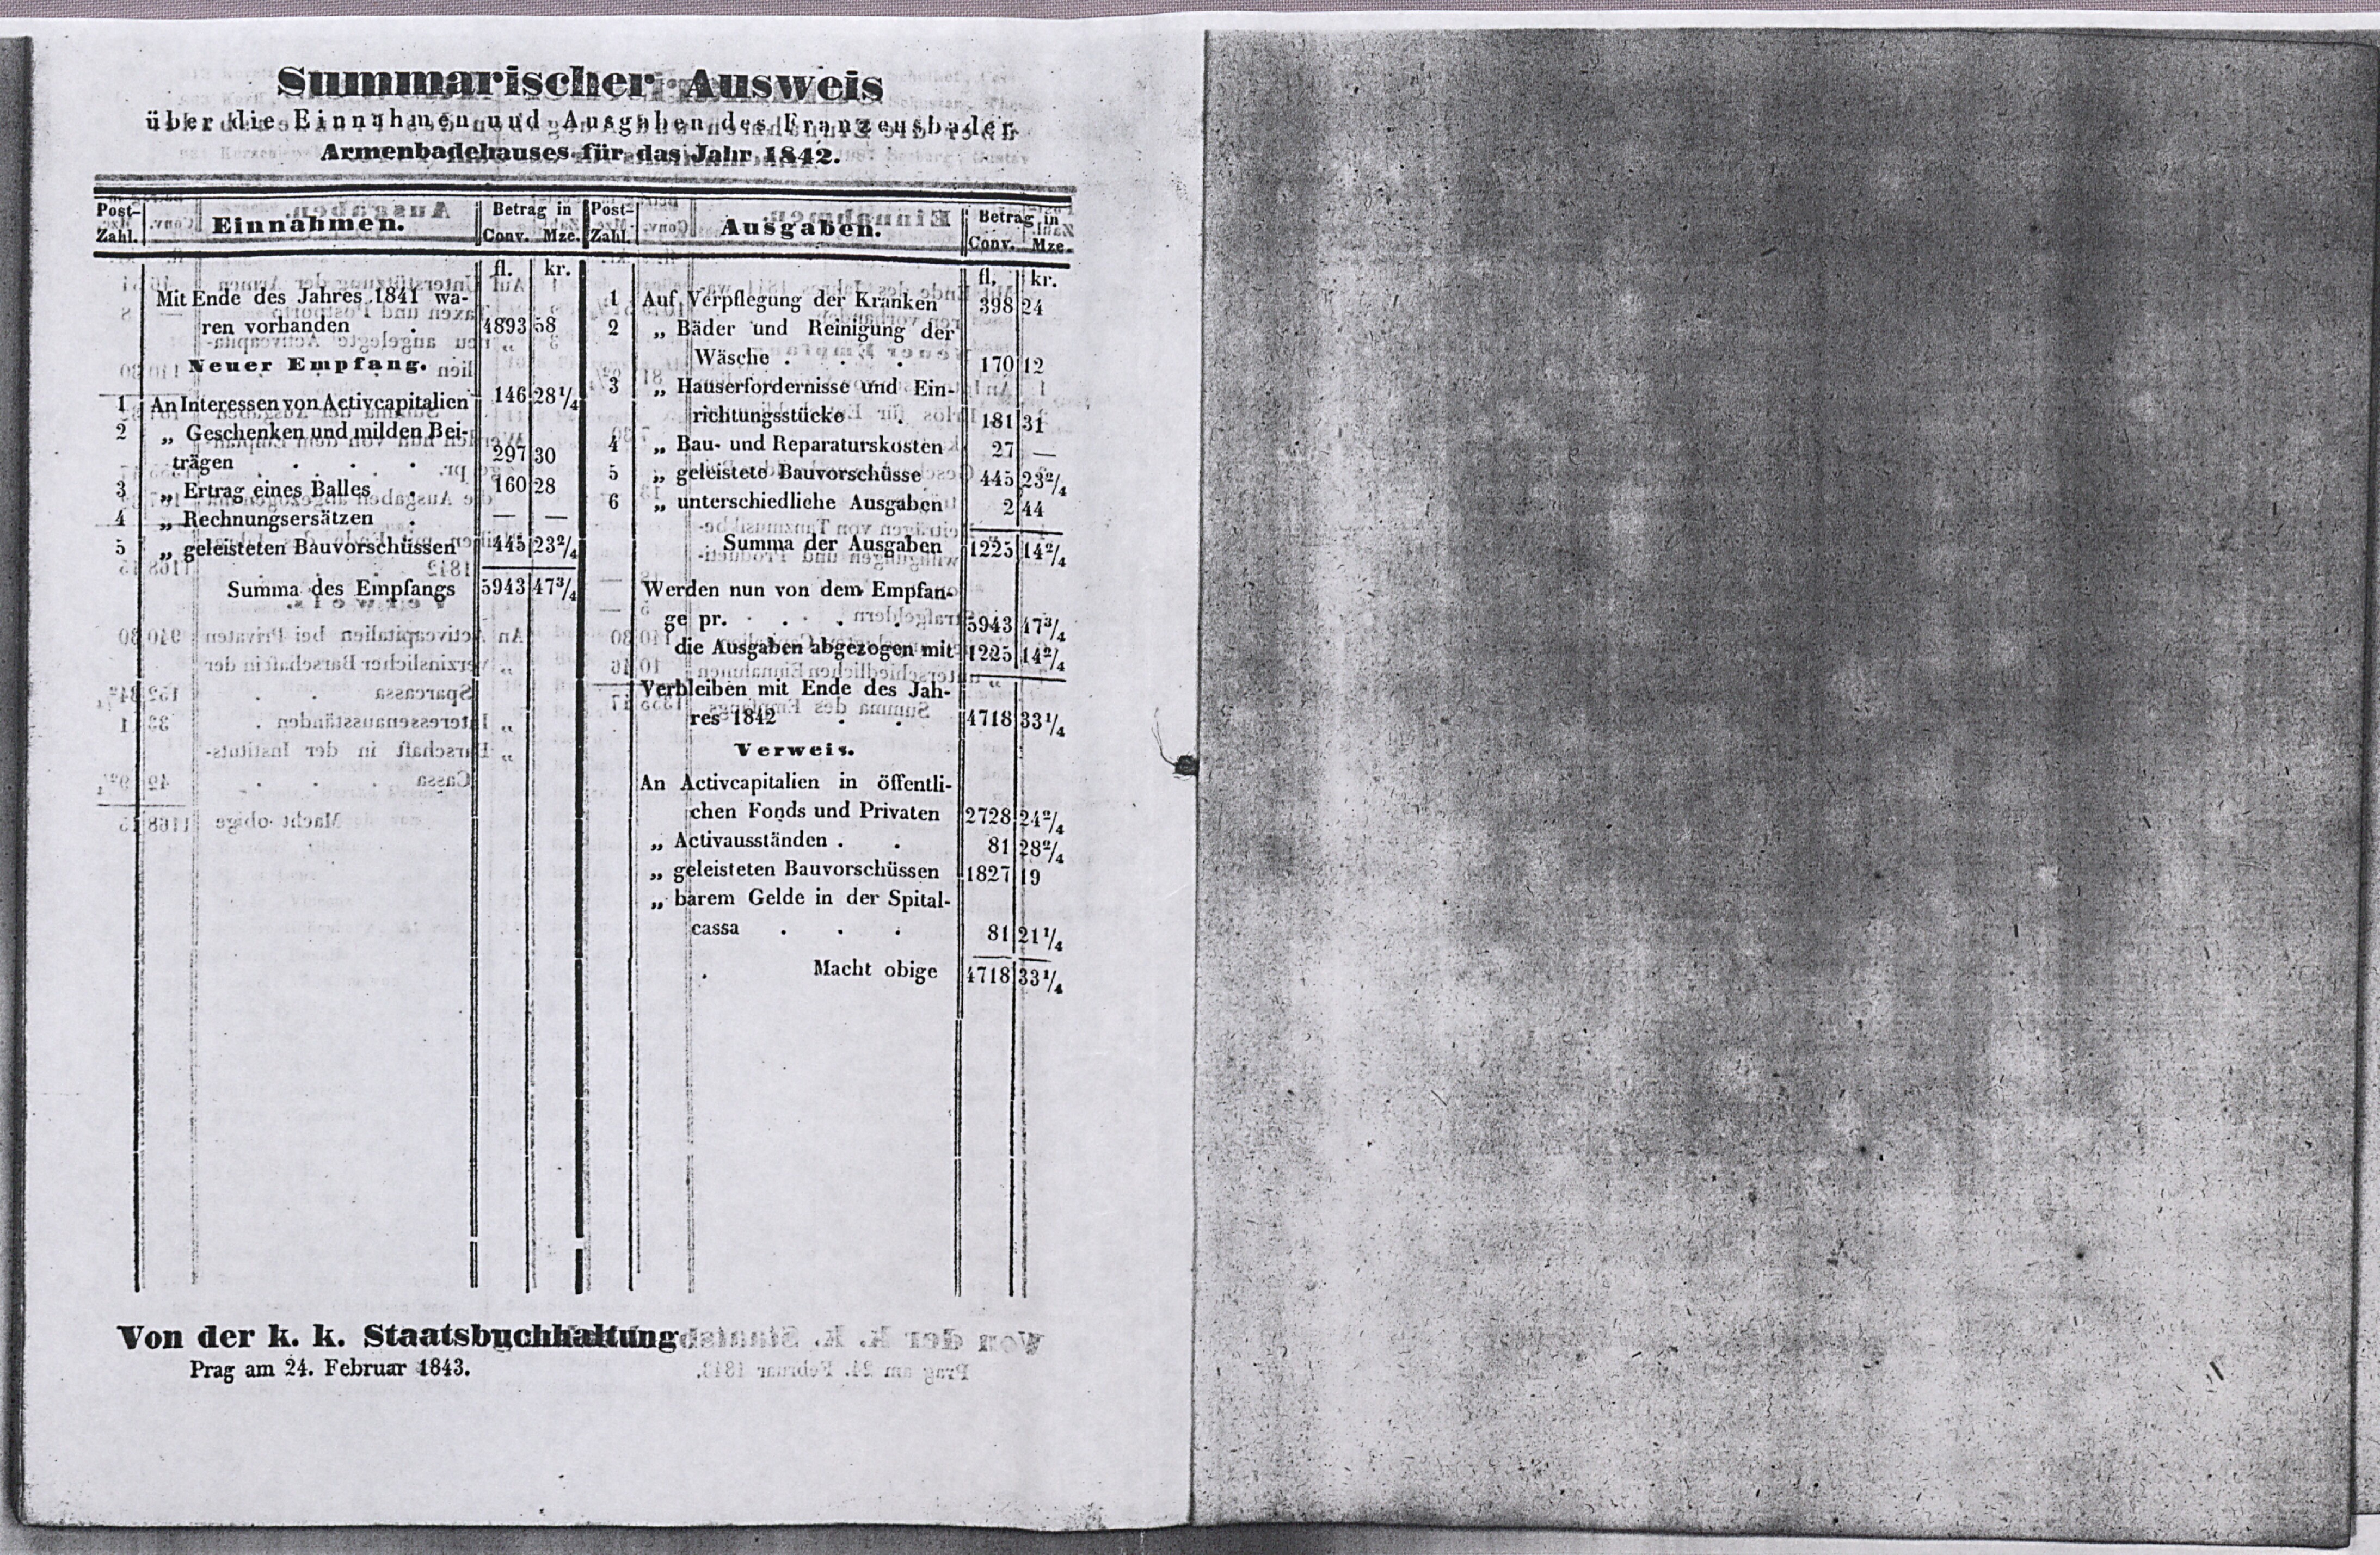 Summarischer Ausweis
über die Einnahmen und Ausgaben des Franzensbader
Armenbadehauses für das Jahr 1842.
Post-Zahl. Einnahmen. Betrag in Conv. Mze.
fl. kr.
Mit Ende des Jahres 1841 wa-
ren vorhanden . 4893 58
Neuer Empfang.
1 An Interessen von Activcapitalien 146 28 1/4
2 „ Geschenken und milden Bei-
trägen . . . 297 30
3 „ Ertrag eines Balles . 160 28
4 „ Rechnungsersätzen . — —
5 „ geleisteten Bauvorschüssen 445 23 2/4
Summa des Empfangs 5943 47 3/4
Post-Zahl. Ausgaben. Betrag in Conv. Mze.
fl. kr.
1 Auf Verpflegung der Kranken 398 24
2 „ Bäder und Reinigung der
Wäsche . . . 170 12
3 „ Hauserfordernisse und Ein-
richtungsstücke . 181 31
4 „ Bau- und Reparaturskosten 27 —
5 „ geleistete Bauvorschüsse 445 23 2/4
6 „ unterschiedliche Ausgaben 2 44
Summa der Ausgaben 1225 14 2/4
Werden nun von dem Empfan-
ge pr. . . . . 5943 47 3/4
die Ausgaben abgezogen mit 1225 14 2/4
Verbleiben mit Ende des Jah-
res 1842 . . 4718 33 1/4
Verweis.
An Activcapitalien in öffentli-
chen Fonds und Privaten 2728 24 2/4
„ Activausständen . . 81 28 2/4
„ geleisteten Bauvorschüssen 1827 19
„ barem Gelde in der Spital-
cassa . . . 81 21 1/4
Macht obige 4718 33 1/4
Von der k. k. Staatsbuchhaltung
Prag am 24. Februar 1843.